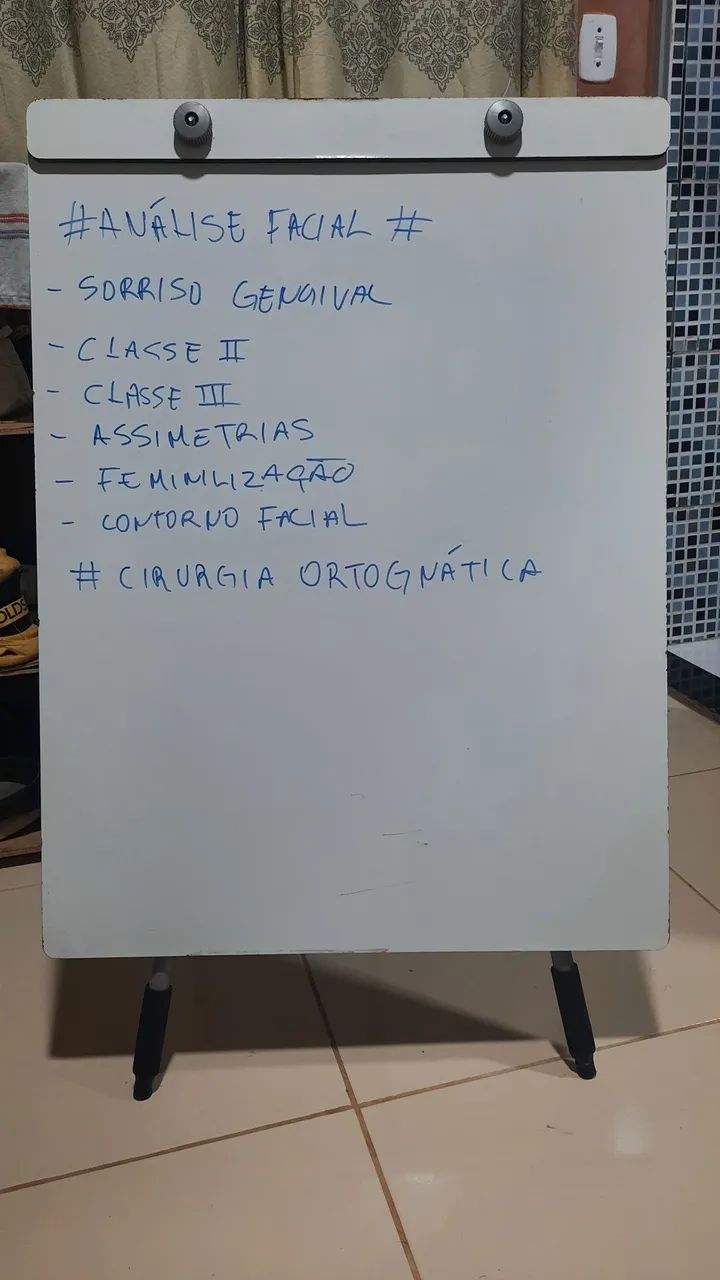 #ANÁLISE FACIAL #
- SORRISO GENGIVAL
- CLASSE II
- CLASSE III
- ASSIMETRIAS
- FEMINILIZAÇÃO
- CONTORNO FACIAL
# CIRURGIA ORTOGNÁTICA